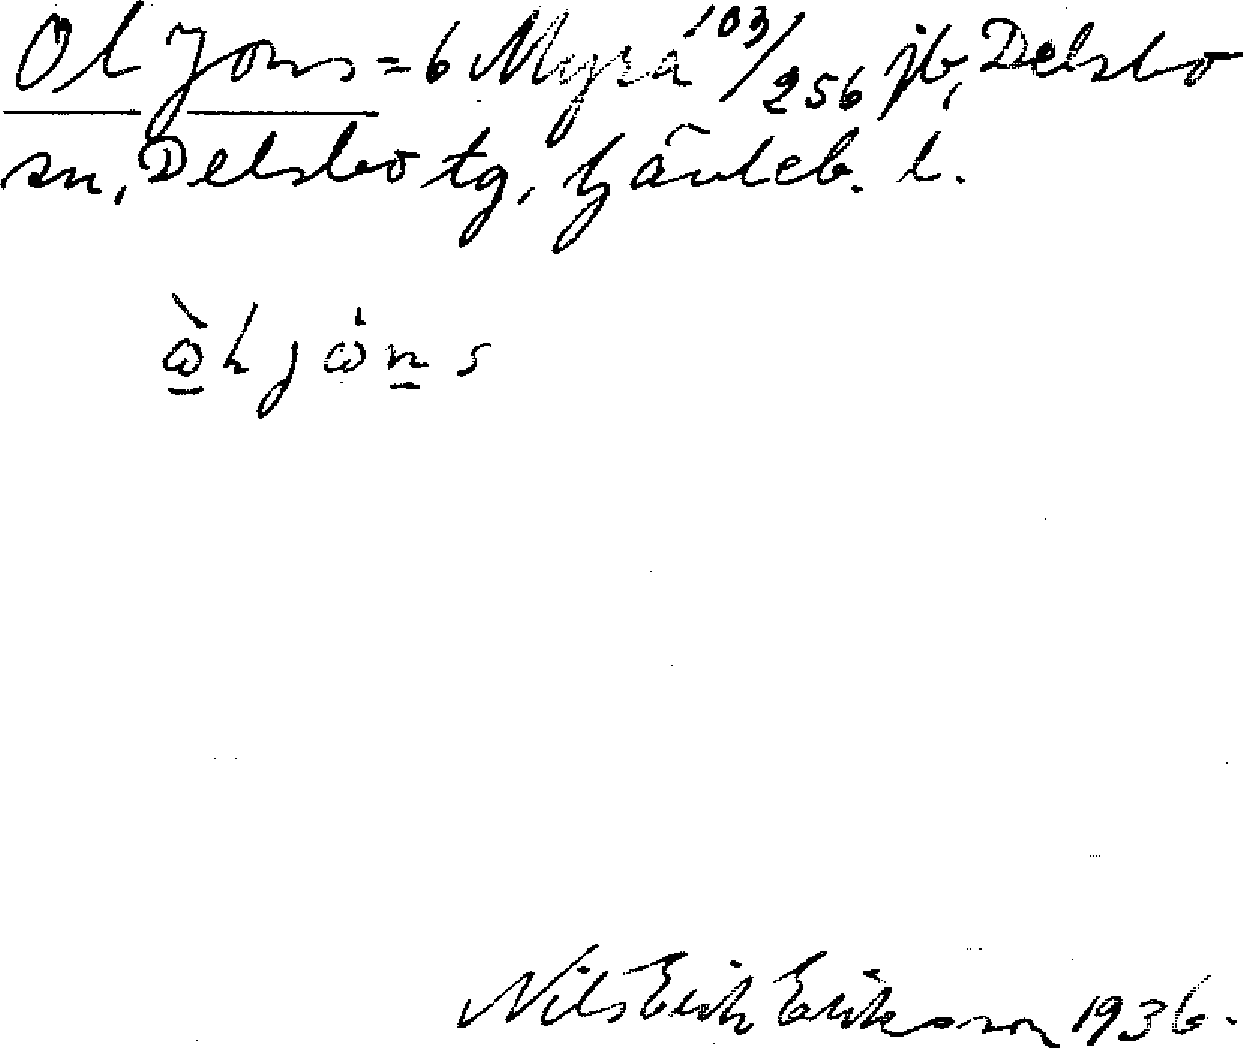 Ol Jons = 6 Myra 103/256 jb, Delsbo
sn, Delsbo tg, Gävleb. l.
Nils Erik Eriksson 1936.